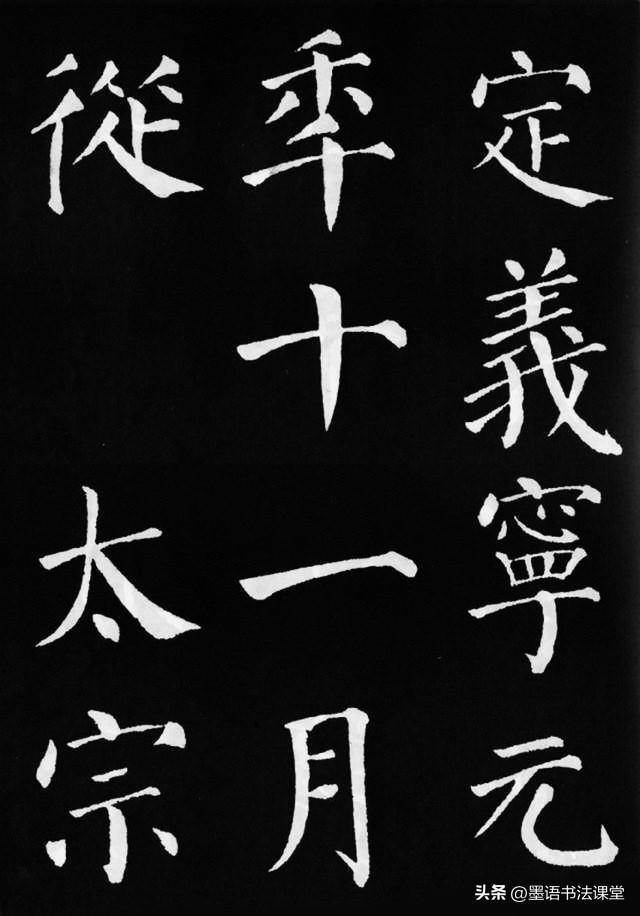 定義寧元
秊十一月
從太宗
头条 @墨语书法课堂